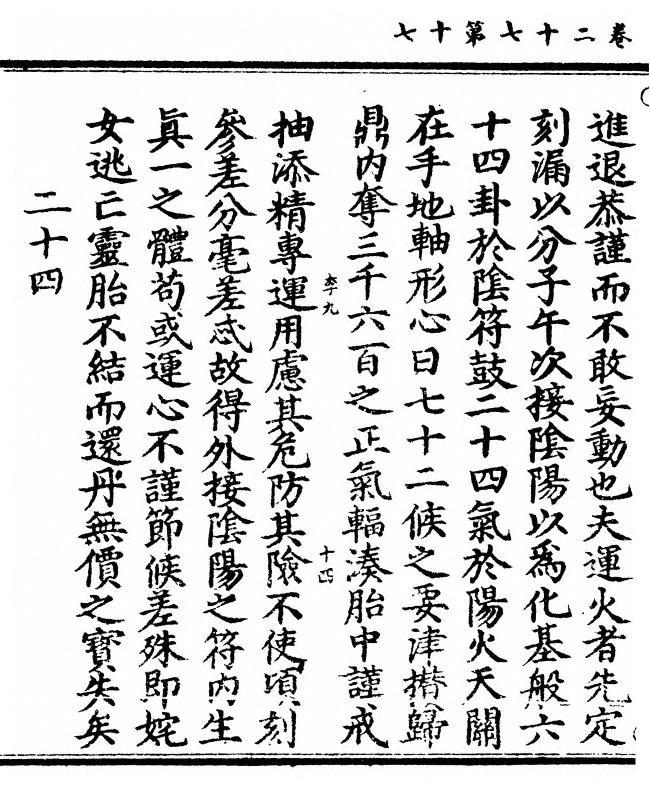 卷二十七第十七
進退恭謹而不敢妄動也夫運火者先定
刻漏以分子午次接陰陽以爲化基般六
十四卦於陰符鼓二十四氣於陽火天關
在手地軸形心曰七十二候之要津攢歸
鼎内奪三千六百之正氣輻湊胎中謹戒
抽添精專運用慮其危防其險不使頃刻
參差分毫差忒故得外接陰陽之符内生
眞一之體苟或運心不謹節候差殊即姹
女逃亡靈胎不結而還丹無價之寶失矣
二十四